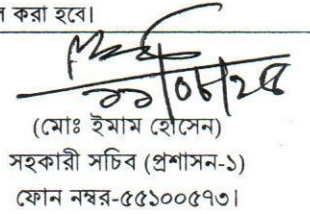 করা হবে।
(মোঃ ইমাম হোসেন)
সহকারী সচিব (প্রশাসন-১)
ফোন নম্বর-৫৫১০০৫৭৩।